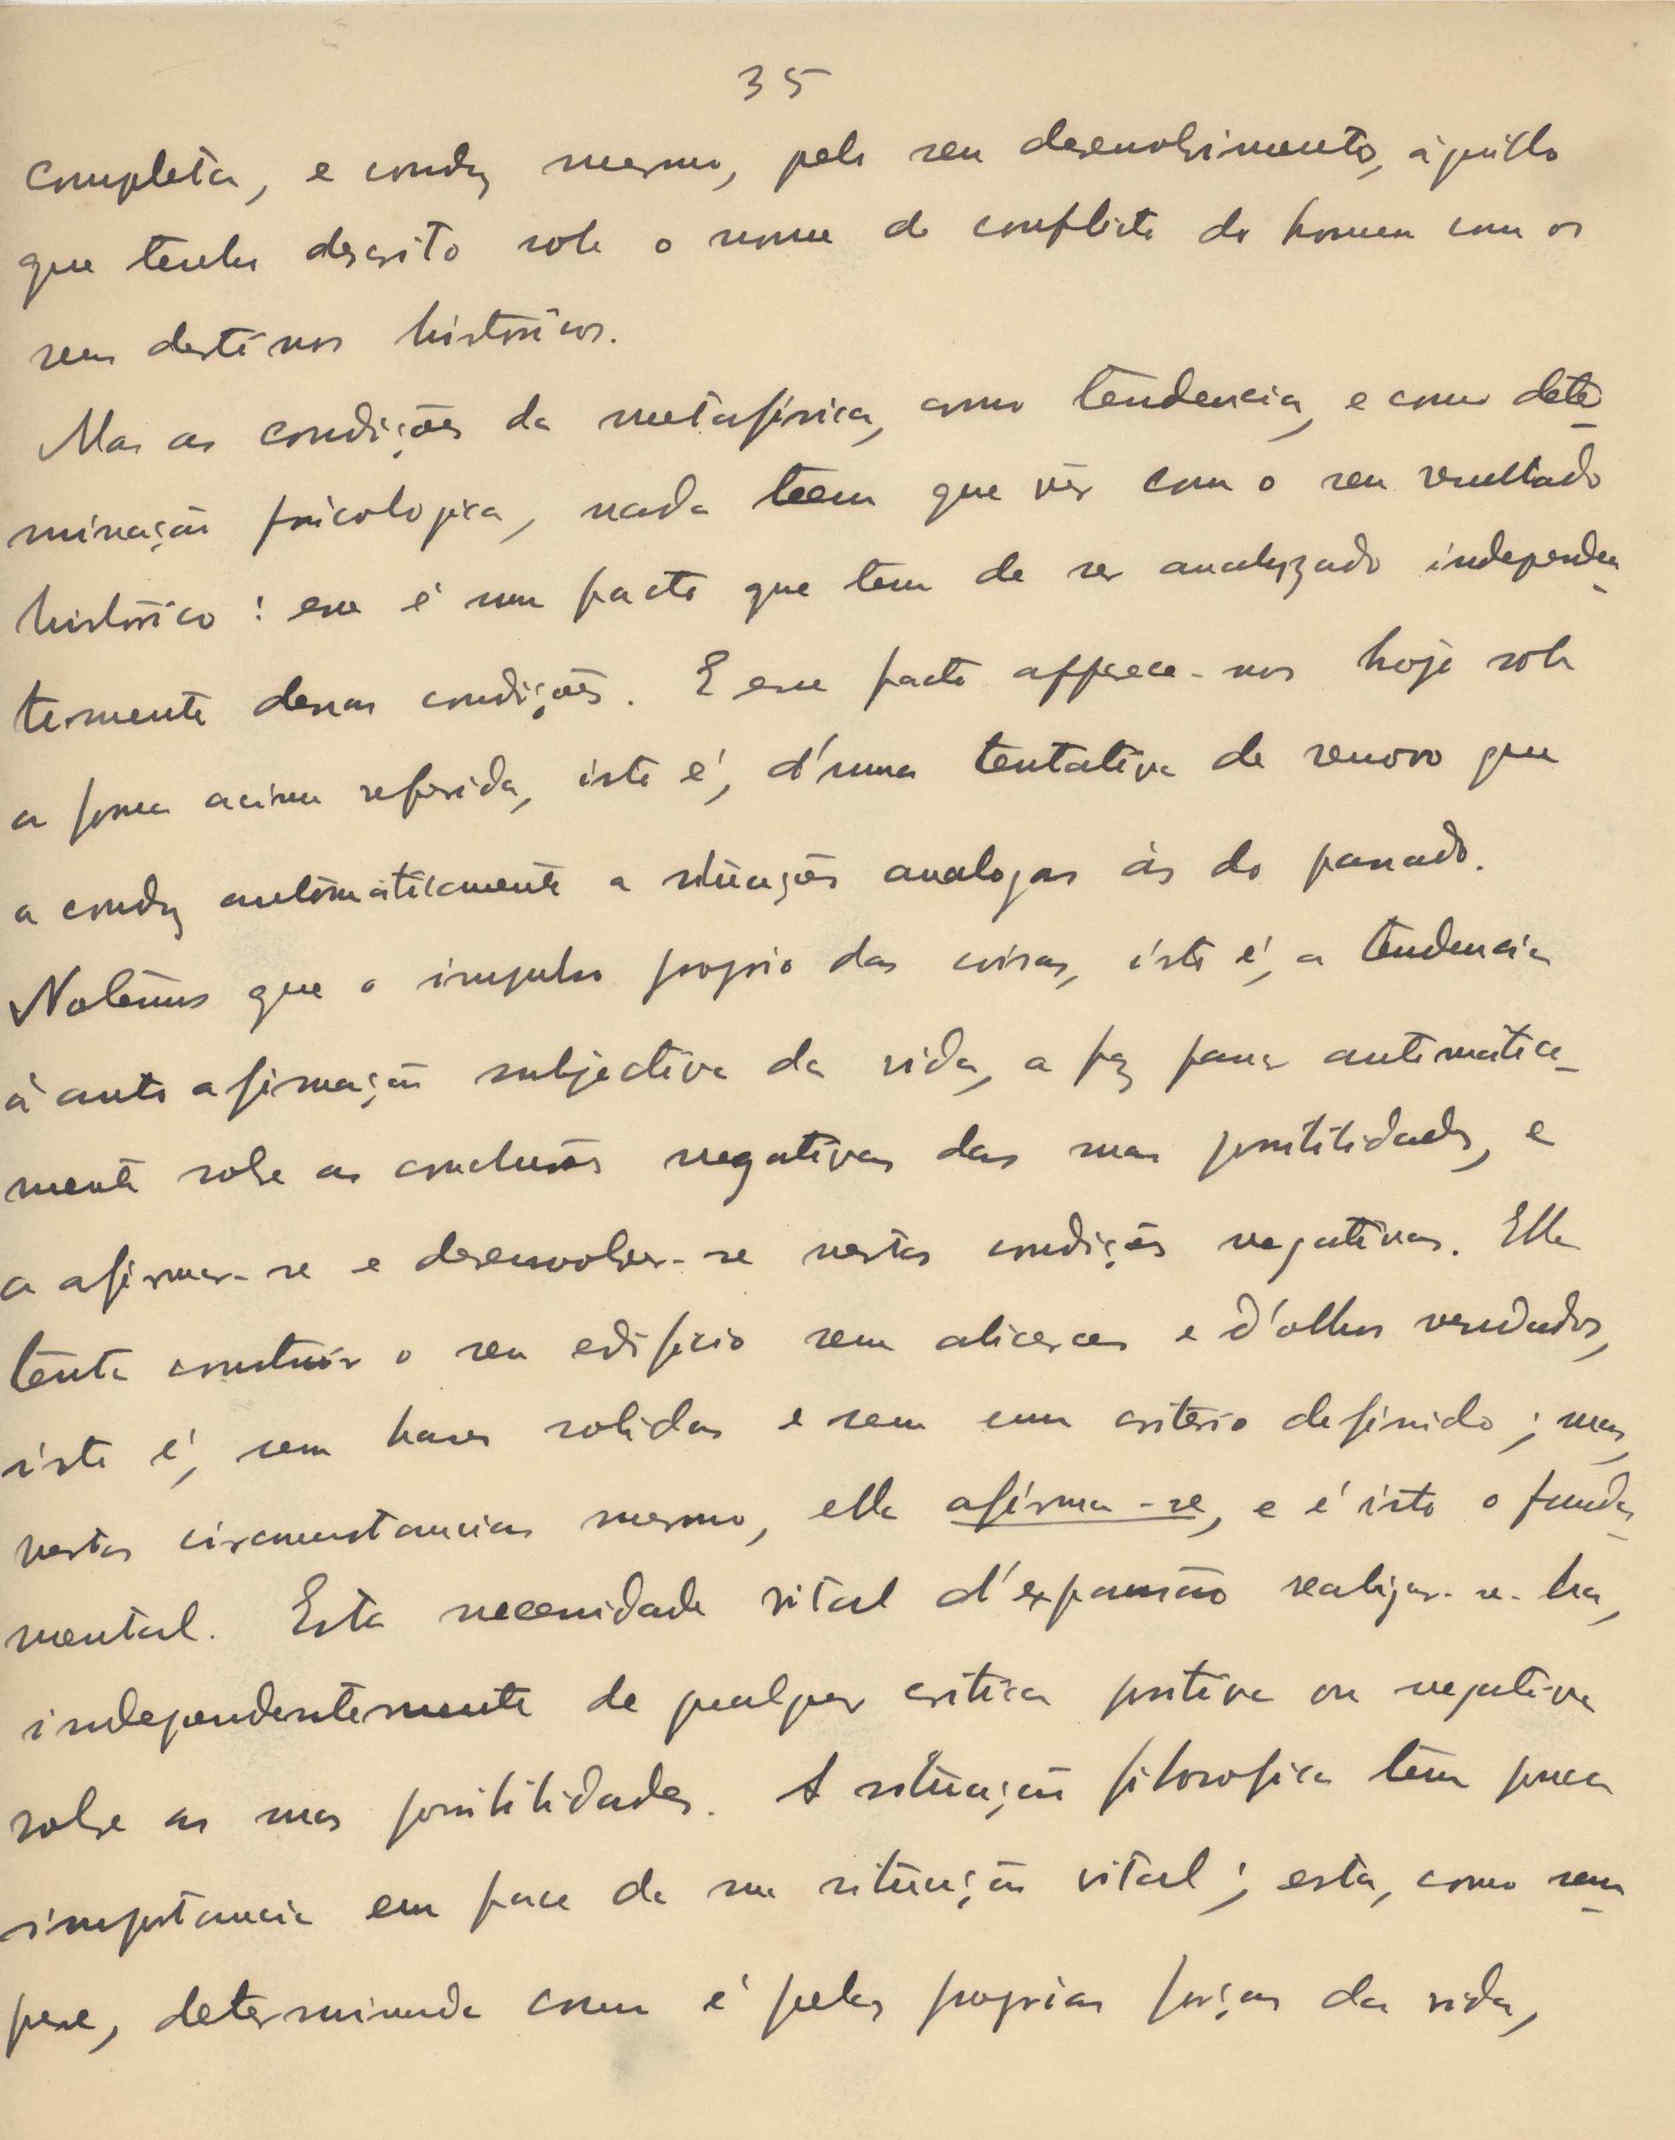 35
completa, e conduz mesmo, pelo seu desenvolvimento, àquillo
que tenho descrito sob o nome de conflicto do homem com os
seus destinos historicos.
Mas as condições da metafísica, como tendencia, e como deter-
minação psicologica, nada teem que vêr com o seu resultado
histórico: esse é um facto que tem de ser analyzado independen-
temente dessas condições. E esse facto apparece-nos hoje sob
a forma acima referida, isto é, d'uma tentativa de renovo que
a conduz automáticamente a situações analogas ás do passado.
Notêmos que o impulso proprio das coisas, isto é, a tendencia
à auto afirmação subjectiva da vida, a faz passar automatica-
mente sobre as conclusões negativas das suas possibilidades, e
a afirmar-se e desenvolver-se nestas condições negativas. Ella
tenta construir o seu edificio sem alicerces e d'olhos vendados,
isto é, sem bases solidas e sem um critério definido; mas,
nestas circumstancias mesmo, ella afirma-se, e é isto o funda-
mental. Esta necessidade vital d'expansão realizar-se-ha,
independentemente de qualquer critica positiva ou negativa
sobre as suas possibilidades. A situação filosofica têm pouca
importancia em face da sua situação vital; esta, como sem-
pre, determinada como é pelas proprias forças da vida,